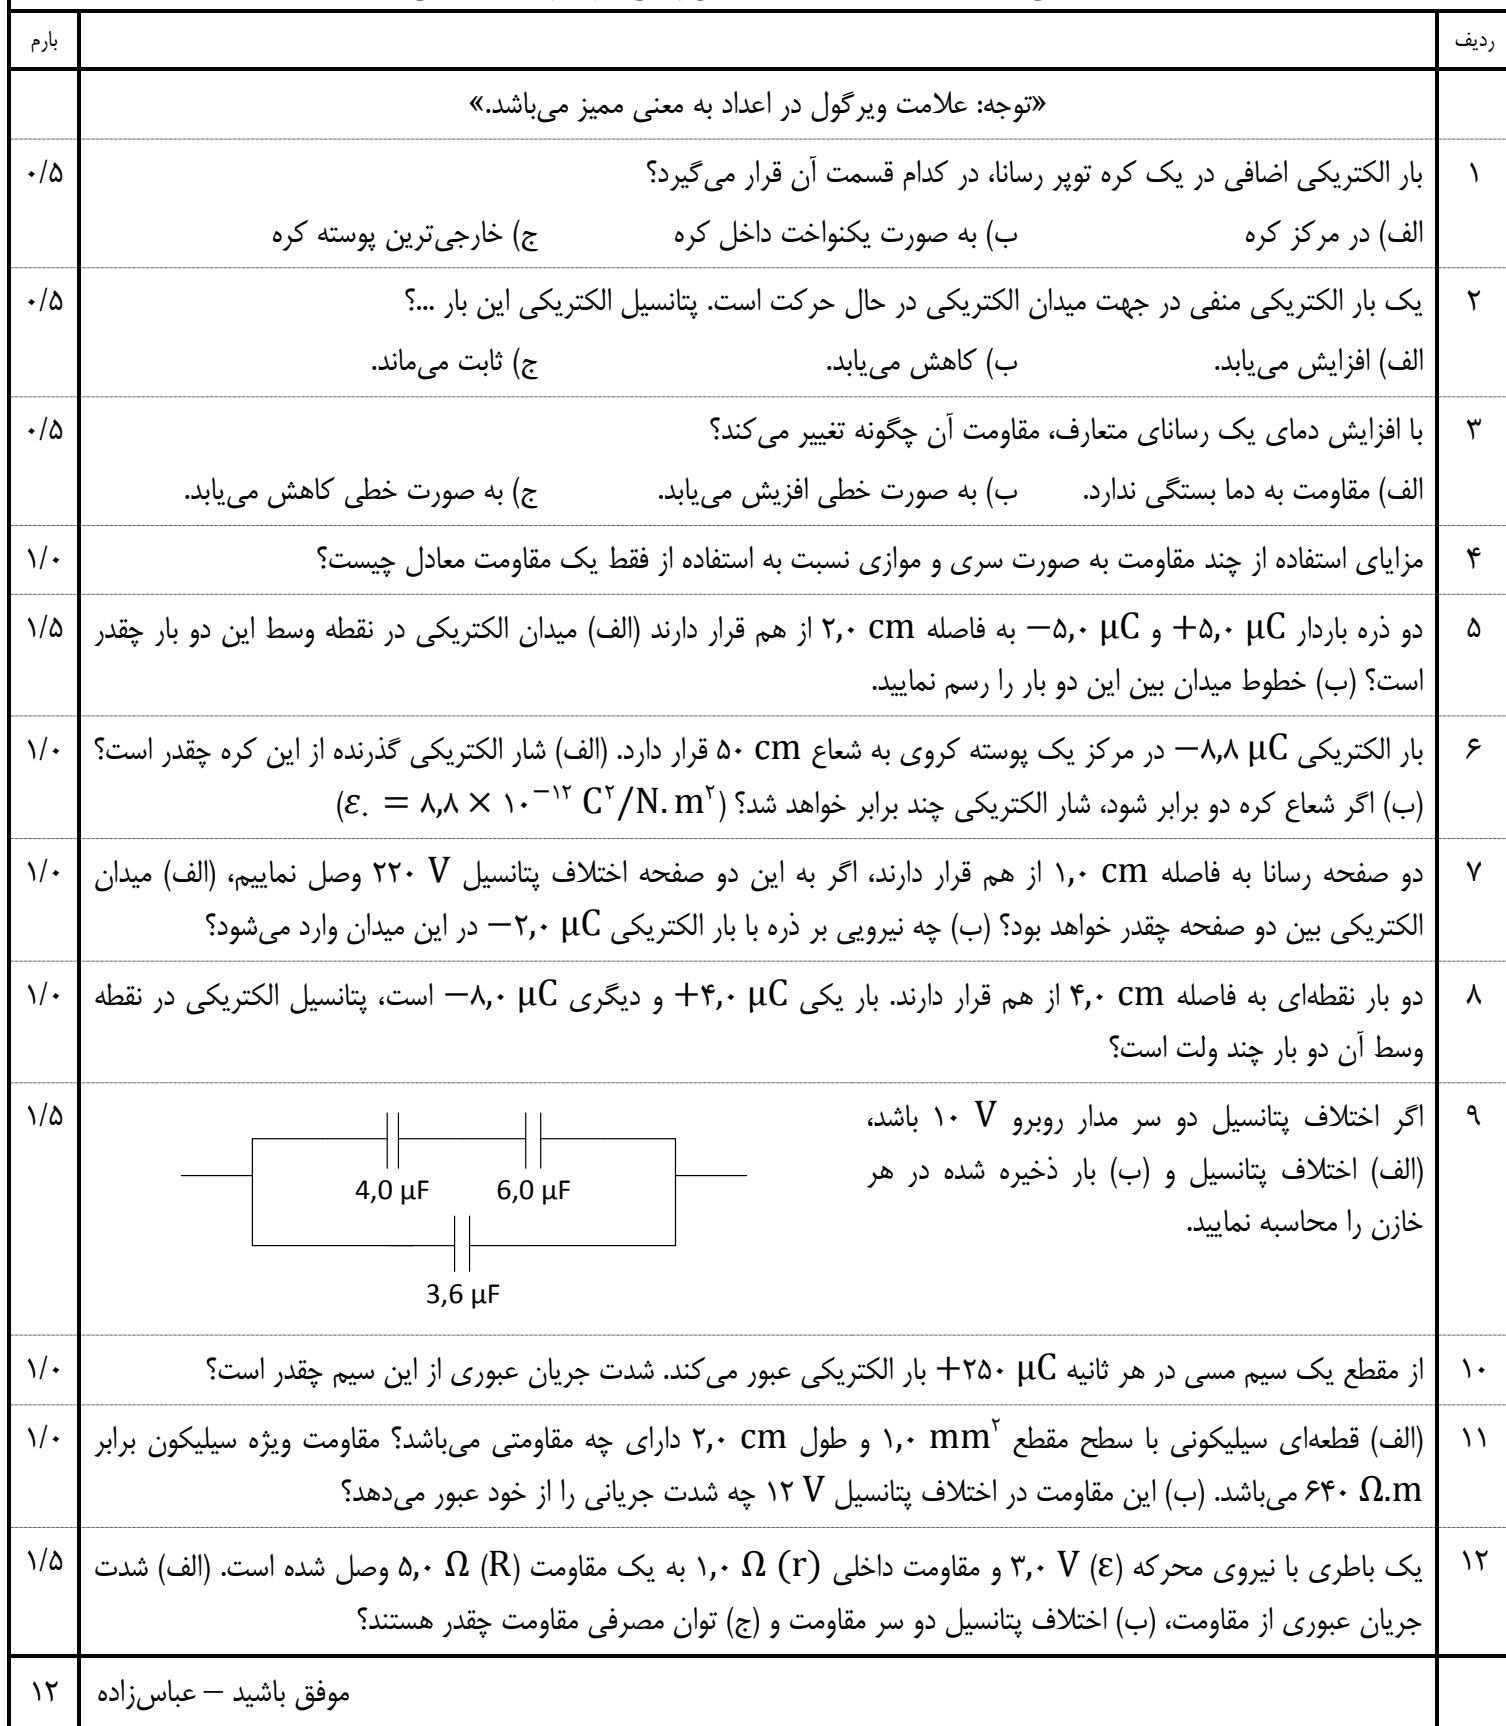 ردیف بارم
«توجه: علامت ویرگول در اعداد به معنی ممیز می‌باشد.»
۱ بار الکتریکی اضافی در یک کره توپر رسانا، در کدام قسمت آن قرار می‌گیرد؟ ۰/۵
الف) در مرکز کره ب) به صورت یکنواخت داخل کره ج) خارجی‌ترین پوسته کره
۲ یک بار الکتریکی منفی در جهت میدان الکتریکی در حال حرکت است. پتانسیل الکتریکی این بار ...؟ ۰/۵
الف) افزایش می‌یابد. ب) کاهش می‌یابد. ج) ثابت می‌ماند.
۳ با افزایش دمای یک رسانای متعارف، مقاومت آن چگونه تغییر می‌کند؟ ۰/۵
الف) مقاومت به دما بستگی ندارد. ب) به صورت خطی افزیش می‌یابد. ج) به صورت خطی کاهش می‌یابد.
۴ مزایای استفاده از چند مقاومت به صورت سری و موازی نسبت به استفاده از فقط یک مقاومت معادل چیست؟ ۱/۰
۵ دو ذره باردار +۵,۰ μC و −۵,۰ μC به فاصله ۲,۰ cm از هم قرار دارند (الف) میدان الکتریکی در نقطه وسط این دو بار چقدر ۱/۵
است؟ (ب) خطوط میدان بین این دو بار را رسم نمایید.
۶ بار الکتریکی −۸,۸ μC در مرکز یک پوسته کروی به شعاع ۵۰ cm قرار دارد. (الف) شار الکتریکی گذرنده از این کره چقدر است؟ ۱/۰
(ب) اگر شعاع کره دو برابر شود، شار الکتریکی چند برابر خواهد شد؟ (ε₀ = ۸,۸ × ۱۰⁻¹² C²/N.m²)
۷ دو صفحه رسانا به فاصله ۱,۰ cm از هم قرار دارند، اگر به این دو صفحه اختلاف پتانسیل ۲۲۰ V وصل نماییم، (الف) میدان ۱/۰
الکتریکی بین دو صفحه چقدر خواهد بود؟ (ب) چه نیرویی بر ذره با بار الکتریکی −۲,۰ μC در این میدان وارد می‌شود؟
۸ دو بار نقطه‌ای به فاصله ۴,۰ cm از هم قرار دارند. بار یکی +۴,۰ μC و دیگری −۸,۰ μC است، پتانسیل الکتریکی در نقطه ۱/۰
وسط آن دو بار چند ولت است؟
۹ اگر اختلاف پتانسیل دو سر مدار روبرو ۱۰ V باشد، ۱/۵
(الف) اختلاف پتانسیل و (ب) بار ذخیره شده در هر
خازن را محاسبه نمایید.
4,0 μF 6,0 μF
3,6 μF
۱۰ از مقطع یک سیم مسی در هر ثانیه +۲۵۰ μC بار الکتریکی عبور می‌کند. شدت جریان عبوری از این سیم چقدر است؟ ۱/۰
۱۱ (الف) قطعه‌ای سیلیکونی با سطح مقطع ۱,۰ mm² و طول ۲,۰ cm دارای چه مقاومتی می‌باشد؟ مقاومت ویژه سیلیکون برابر ۱/۰
۶۴۰ Ω.m می‌باشد. (ب) این مقاومت در اختلاف پتانسیل ۱۲ V چه شدت جریانی را از خود عبور می‌دهد؟
۱۲ یک باطری با نیروی محرکه (ε) ۳,۰ V و مقاومت داخلی (r) ۱,۰ Ω به یک مقاومت (R) ۵,۰ Ω وصل شده است. (الف) شدت ۱/۵
جریان عبوری از مقاومت، (ب) اختلاف پتانسیل دو سر مقاومت و (ج) توان مصرفی مقاومت چقدر هستند؟
موفق باشید – عباس‌زاده ۱۲